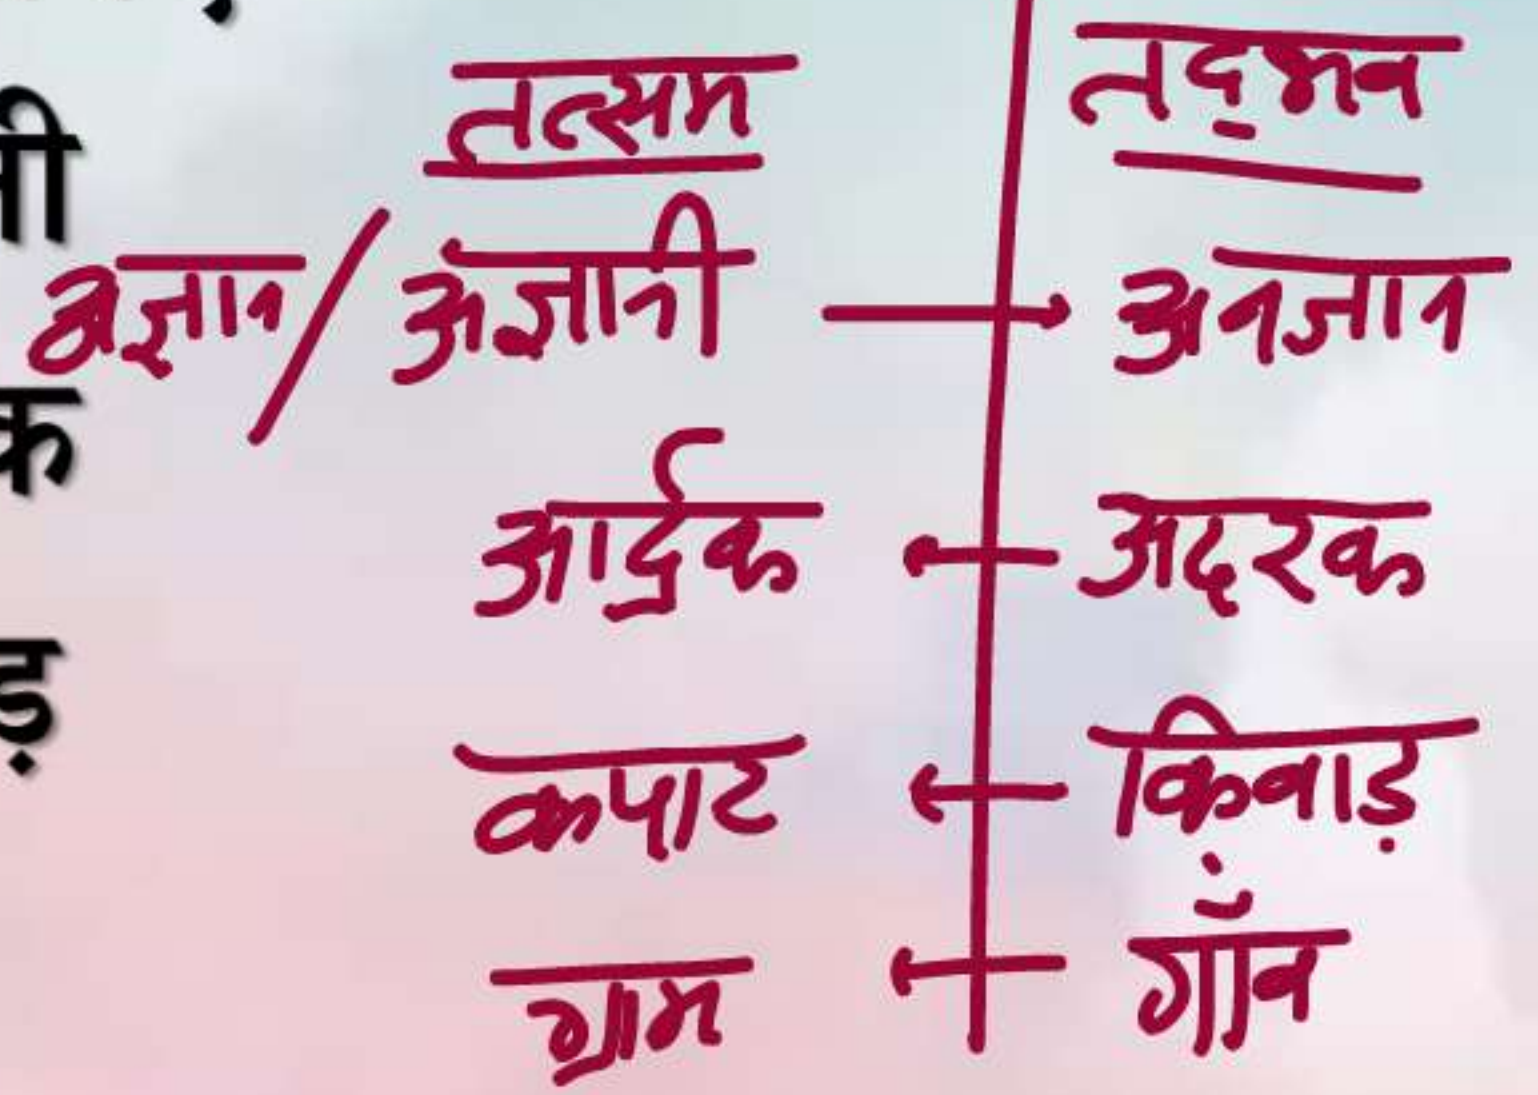 तत्सम तद्भव
अज्ञान / अज्ञानी → अनजान
आर्द्रक ← अदरक
कपाट ← किवाड़
ग्राम ← गाँव